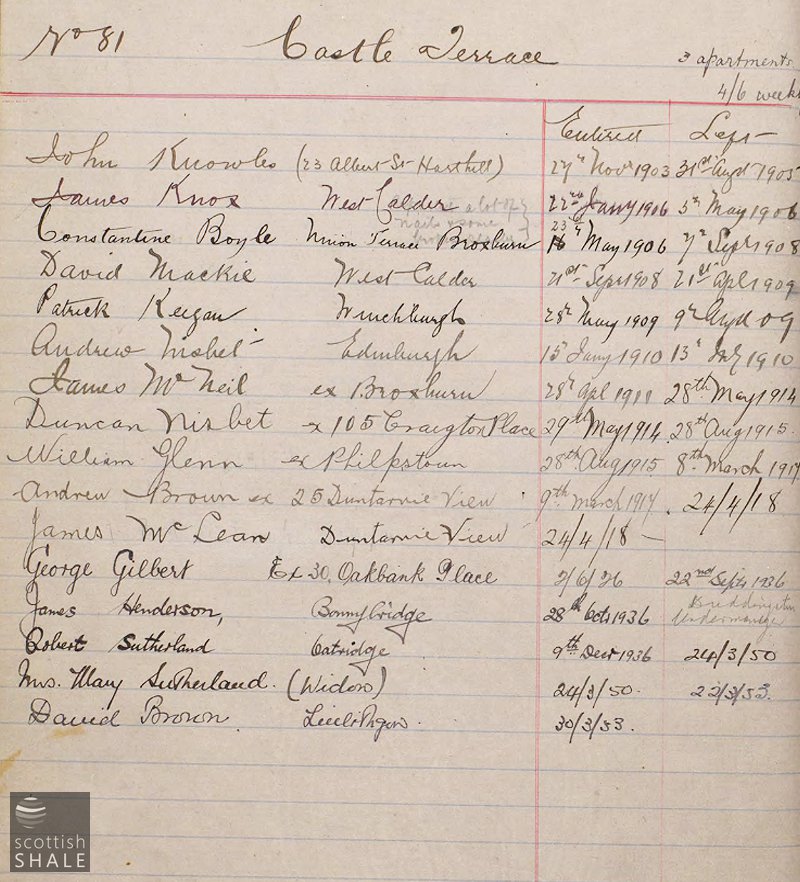 No 81 Castle Terrace 3 apartments
4/6 weekly
Entered Left
John Knowles (23 Albert St Harthill) 27th Novr 1903 31st Augst 1905
James Knox West Calder 22nd Jany 1906 5th May 1906
a lot of
nails & some
23rd
Constantine Boyle Union Terrace Broxburn 16 May 1906 7th Sept 1908
David Mackie West Calder 21st Sepr 1908 21st Apl 1909
Patrick Keegan Winchburgh 28th May 1909 9th Augt 09
Andrew Nisbet Edinburgh 15th Jany 1910 13th 1910
James McNeil ex Broxburn 28th Apl 1911 28th May 1914
Duncan Nisbet ex 105 Craigton Place 29th May 1914 28th Aug 1915
William Glenn ex Philpstoun 28th Aug 1915 8th March 1917
Andrew Brown ex 25 Duntarvie View 9th March 1917 24/4/18
James McLean Duntarvie View 24/4/18 –
George Gilbert Ex 30, Oakbank Place 2/6/26 22nd Sept 1936
James Henderson, Bonnybridge 28th Oct 1936 Undermanager
Robert Sutherland Oatridge 9th Decr 1936 24/3/50
Mrs. Mary Sutherland. (Widow) 24/3/50. 22/3/53.
David Brown 30/3/53.
scottish
SHALE